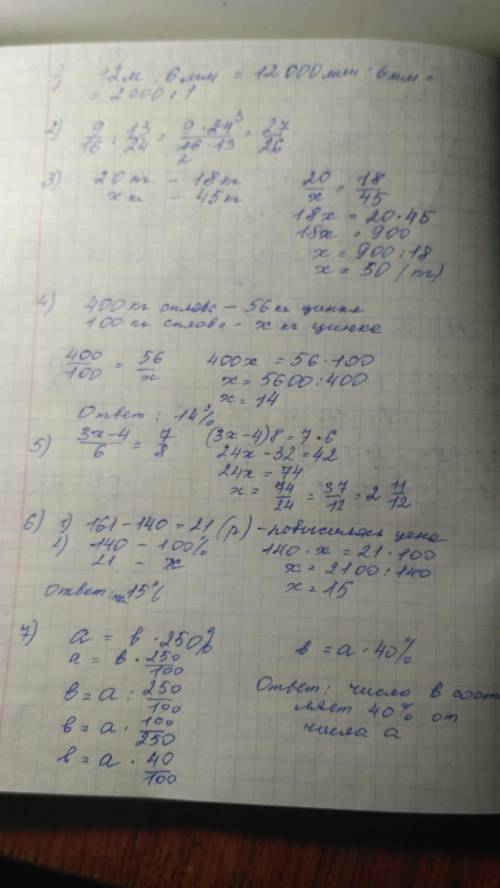 1) 12м : 6мм = 12000мм : 6мм =
= 2000 : 1
2) 9/16 : 13/24 = 9·24³/16₂·13 = 27/26
3) 20 кг – 18 кг
х кг – 45 кг
20/х = 18/45
18х = 20·45
18х = 900
х = 900:18
х = 50 (кг)
4) 400 кг сплава – 56 кг цинка
100 кг сплава – х кг цинка
400/100 = 56/х
400х = 56·100
х = 5600:400
х = 14
Ответ: 14%
5) 3х-4/6 = 7/8
(3х-4)8 = 7·6
24х - 32 = 42
24х = 74
х = 74/24 = 37/12 = 2 11/12
6) 1) 161-140 = 21 (р) - повысилась цена
2) 140 – 100%
21 – х
140·х = 21·100
х = 2100:140
х = 15
Ответ: на 15%
7) а = в · 250%
а = в · 250/100
в = а : 250/100
в = а · 100/250
в = а · 40/100
в = а · 40%
Ответ: число в сост
ляет 40% от
числа а